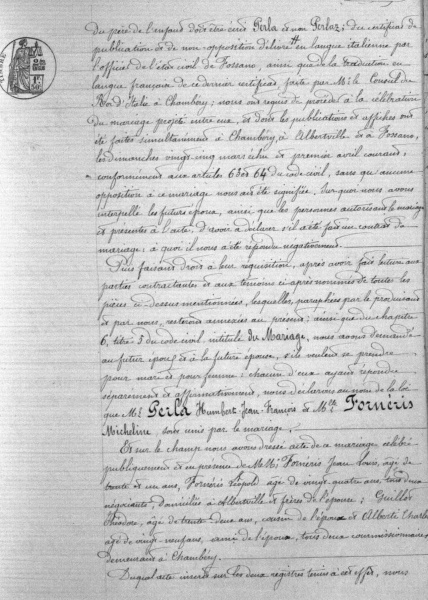 du père de l'enfant doit être écrit Perla et non Perlaz; du certificat de
publication et de non opposition délivré en langue italienne par
l'officier de l'état civil de Fossano, ainsi que de la traduction en
langue française de ce dernier certificat, faite par Mr le Consul de
Roi d'Italie à Chambéry; nous ont requis de procéder à la célébration
du mariage projeté entre eux, et dont les publications et affiches ont
été faites simultanément à Chambéry, à Albertville et à Fossano,
les dimanches vingt-cinq mars échu et premier avril courant,
conformément aux articles 63 et 64 du code civil, sans qu'aucune
opposition à ce mariage nous ait été signifiée. Sur quoi nous avons
interpellé les futurs époux, ainsi que les personnes autorisant le mariage
et présentes à l'acte, d'avoir à déclarer s'il a été fait un contrat de
mariage; à quoi il nous a été répondu négativement.
Puis faisant droit à leur réquisition, après avoir fait lecture aux
parties contractantes et aux témoins ci-après nommés de toutes les
pièces ci-dessus mentionnées, lesquelles, paraphées par le produisant
et par nous, resteront annexées au présent; ainsi que du chapitre
6, titre 5 du code civil, intitulé du Mariage, nous avons demandé
au futur époux et à la future épouse, s'ils veulent se prendre
pour mari et pour femme; chacun d'eux ayant répondu
séparément et affirmativement, nous déclarons au nom de la loi
que Mr Perla Humbert-Jean-François et Melle Fornéris
Micheline, sont unis par le mariage.
Et sur le champ nous avons dressé acte de ce mariage célébré
publiquement et en présence de MM. Fornéris Jean Louis, âgé de
trente et un ans, Fornéris Léopold âgé de vingt-quatre ans, tous deux
négociants, domiciliés à Albertville et frères de l'épouse; Guillot
Théodore, âgé de trente-deux ans, cousin de l'époux et Alberté Charles
âgé de vingt-neuf ans, ami de l'époux, tous deux commissionnaires,
demeurant à Chambéry.
Duquel acte inscrit sur les deux registres tenus à cet effet, nous